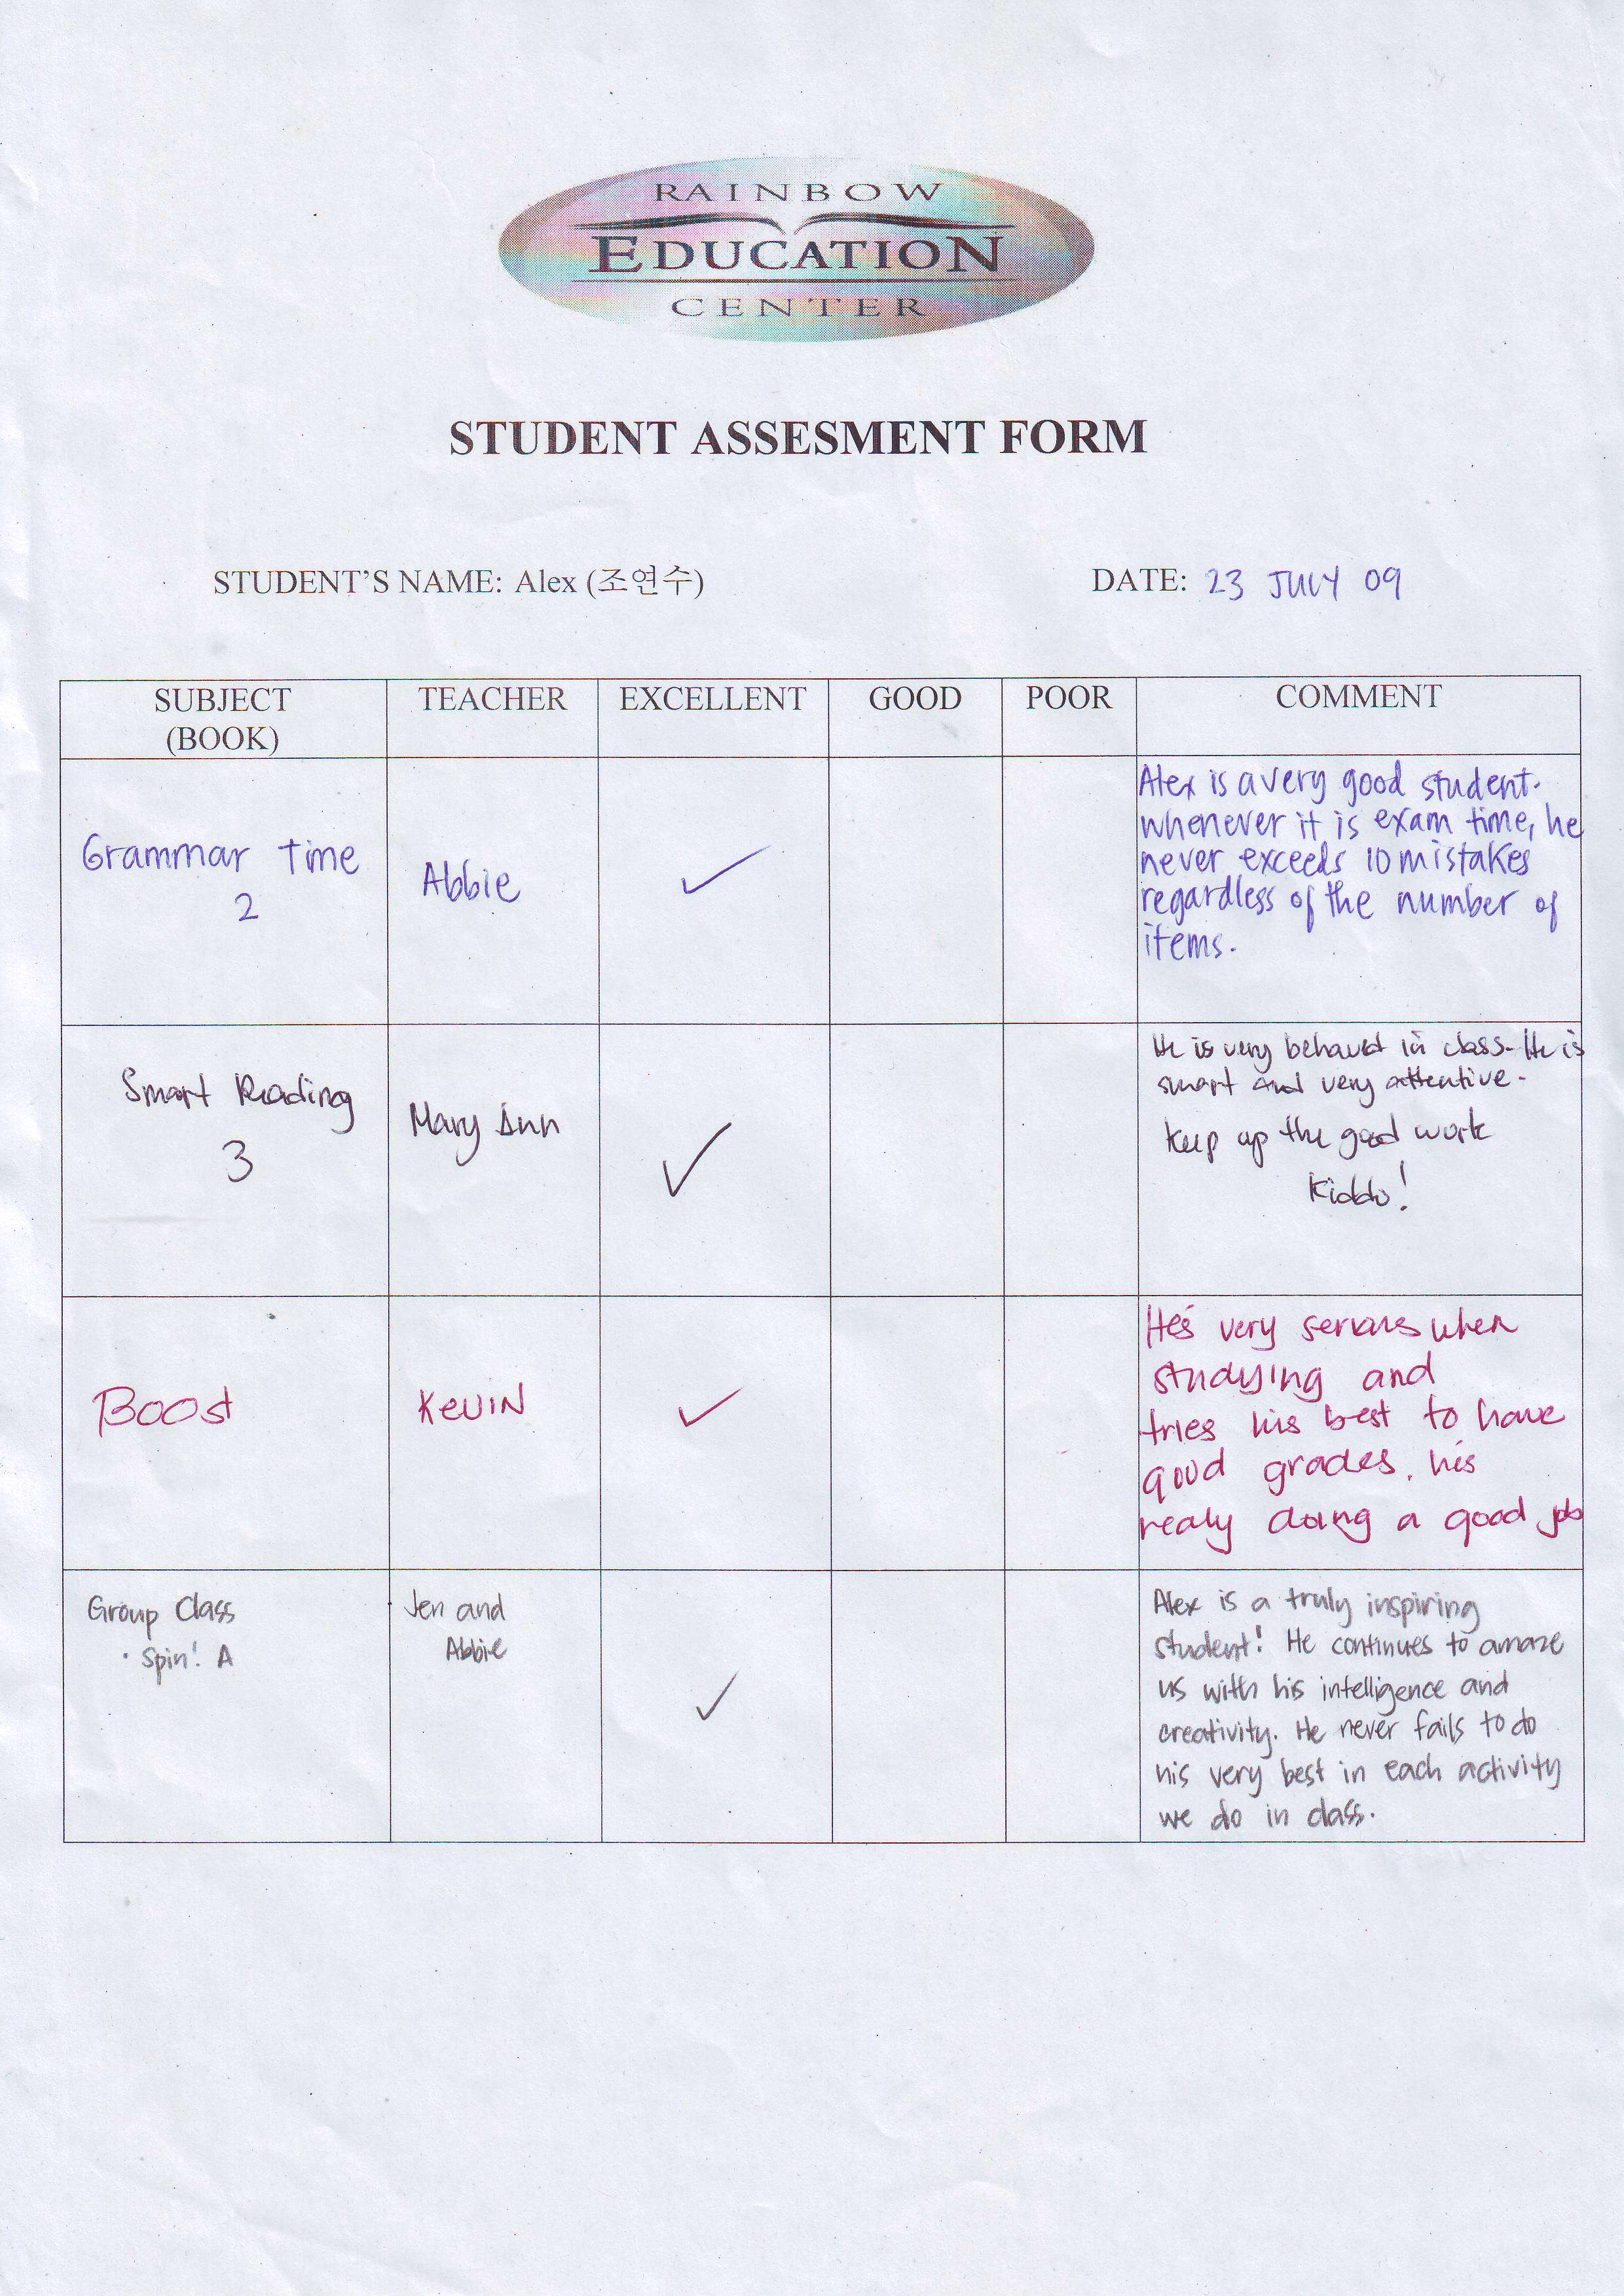 RAINBOW
EDUCATION
CENTER
STUDENT ASSESMENT FORM
STUDENT'S NAME: Alex (조연수)
DATE: 23 JULY 09
SUBJECT
(BOOK)
TEACHER
EXCELLENT
GOOD
POOR
COMMENT
Grammar Time
2
Abbie
✓
Alex is a very good student.
whenever it is exam time, he
never exceeds 10 mistakes
regardless of the number of
items.
Smart Reading
3
Mary Ann
✓
He is very behaved in class. He is
smart and very attentive.
Keep up the good work
Kiddo!
Boost
KEVIN
✓
He's very serious when
studying and
tries his best to have
good grades. his
realy doing a good job
Group Class
· Spin! A
Jen and
Abbie
✓
Alex is a truly inspiring
student! He continues to amaze
us with his intelligence and
creativity. He never fails to do
his very best in each activity
we do in class.